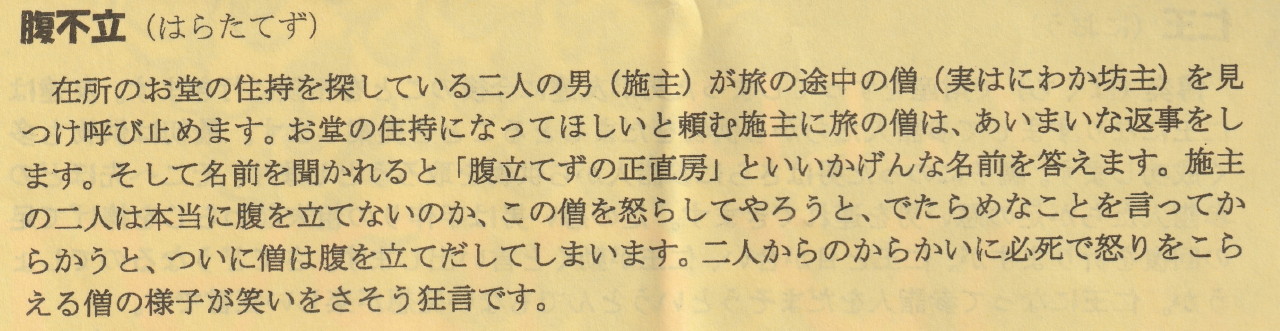 腹不立（はらたてず）
在所のお堂の住持を探している二人の男（施主）が旅の途中の僧（実はにわか坊主）を見
つけ呼び止めます。お堂の住持になってほしいと頼む施主に旅の僧は、あいまいな返事をし
ます。そして名前を聞かれると「腹立てずの正直房」といいかげんな名前を答えます。施主
の二人は本当に腹を立てないのか、この僧を怒らしてやろうと、でたらめなことを言ってか
らかうと、ついに僧は腹を立てだしてしまいます。二人からのからかいに必死で怒りをこら
える僧の様子が笑いをさそう狂言です。